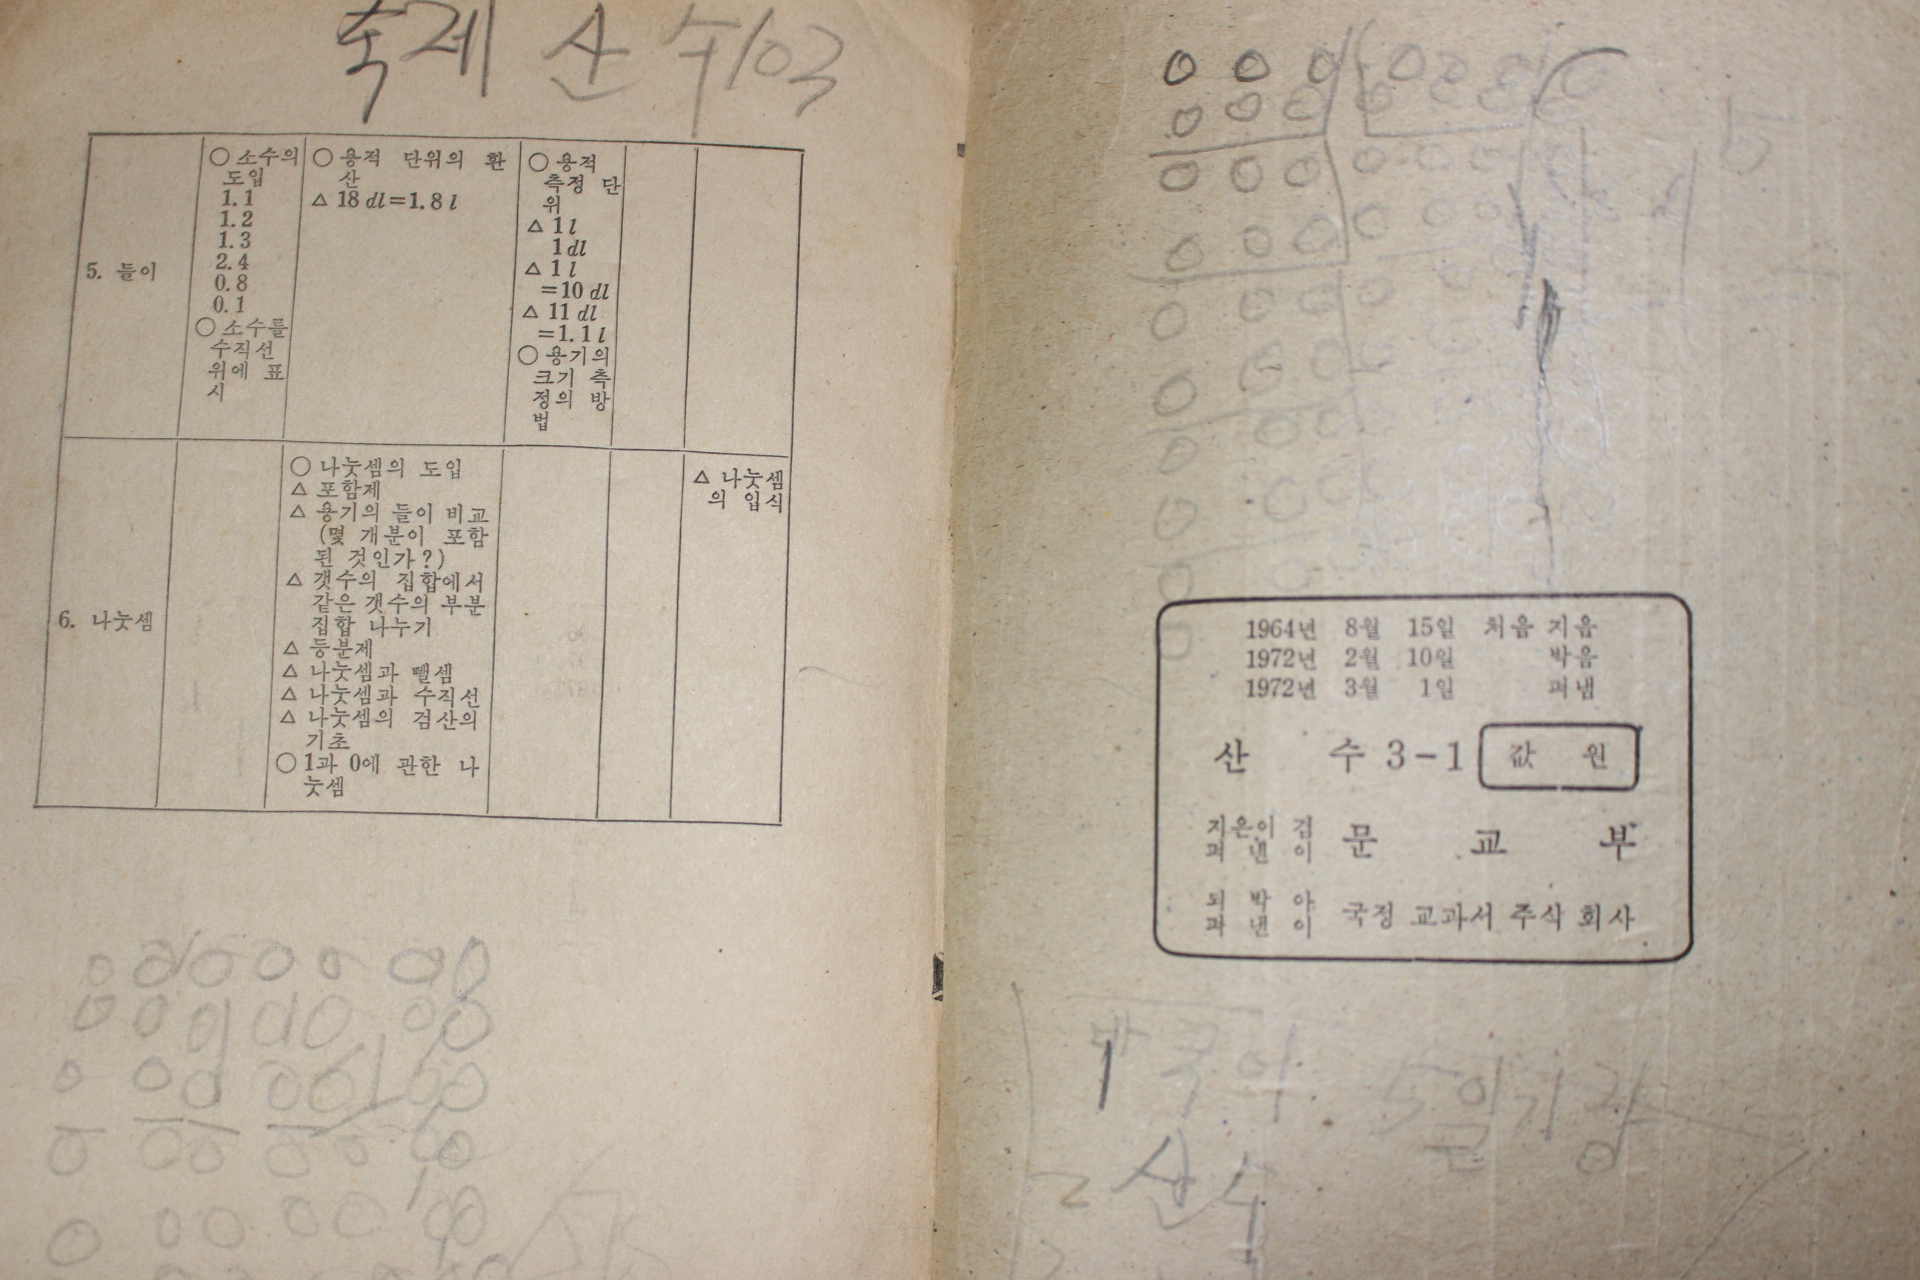 숙제 산수 103
5. 들이
○ 소수의
도입
1.1
1.2
1.3
2.4
0.8
0.1
○ 소수를
수직선
위에 표
시
○ 용적 단위의 환
산
△ 18 dl=1.8 l
○ 용적
측정 단
위
△ 1 l
1 dl
△ 1 l
=10 dl
△ 11 dl
=1.1 l
○ 용기의
크기 측
정의 방
법
6. 나눗셈
○ 나눗셈의 도입
△ 포함제
△ 용기의 들이 비교
(몇 개분이 포함
된 것인가?)
△ 갯수의 집합에서
같은 갯수의 부분
집합 나누기
△ 등분제
△ 나눗셈과 뺄셈
△ 나눗셈과 수직선
△ 나눗셈의 검산의
기초
○ 1과 0에 관한 나
눗셈
△ 나눗셈
의 입식
1964년 8월 15일 처음 지음
1972년 2월 10일 박음
1972년 3월 1일 펴냄
산 수 3-1 값 원
지은이 겸
펴 낸 이
문 교 부
되 박 아
펴 낸 이
국정 교과서 주식 회사
1 국어
5 일기장
2 산수